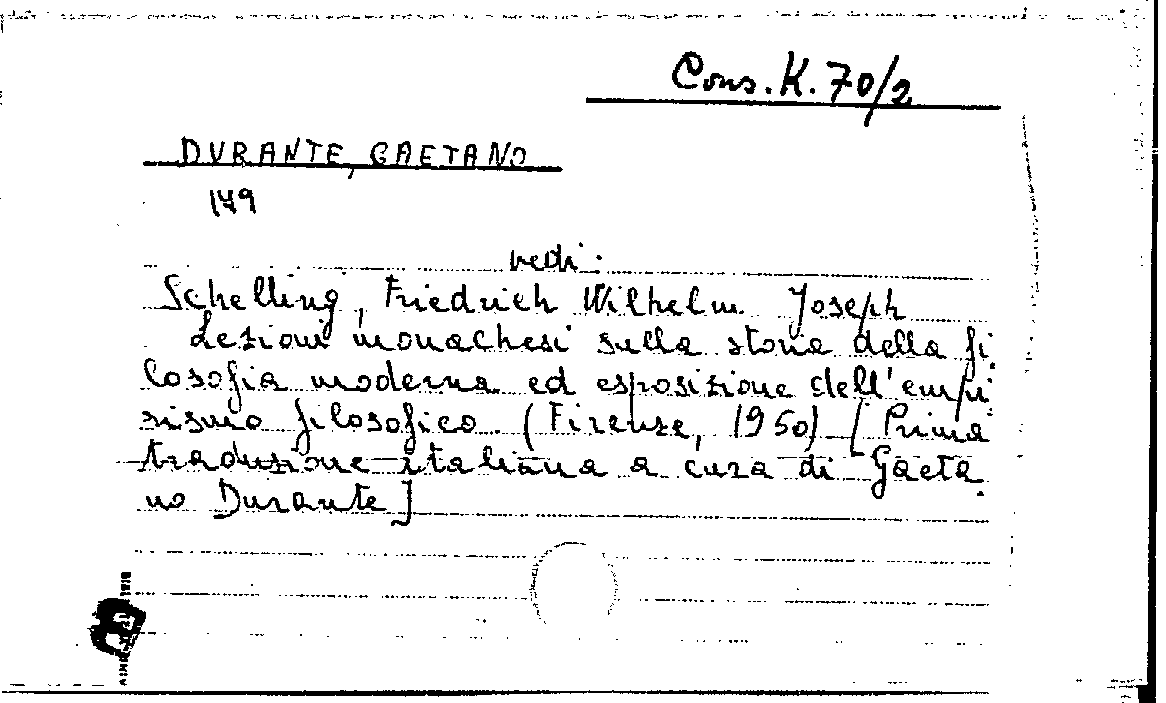 Cons. K. 70/2
DURANTE, GAETANO
149
vedi:
Schelling, Friedrich Wilhelm Joseph
Lezioni monachesi sulla storia della fi
losofia moderna ed esposizione dell'empi
rismo filosofico. (Firenze, 1950) [Prima
traduzione italiana a cura di Gaeta
no Durante]